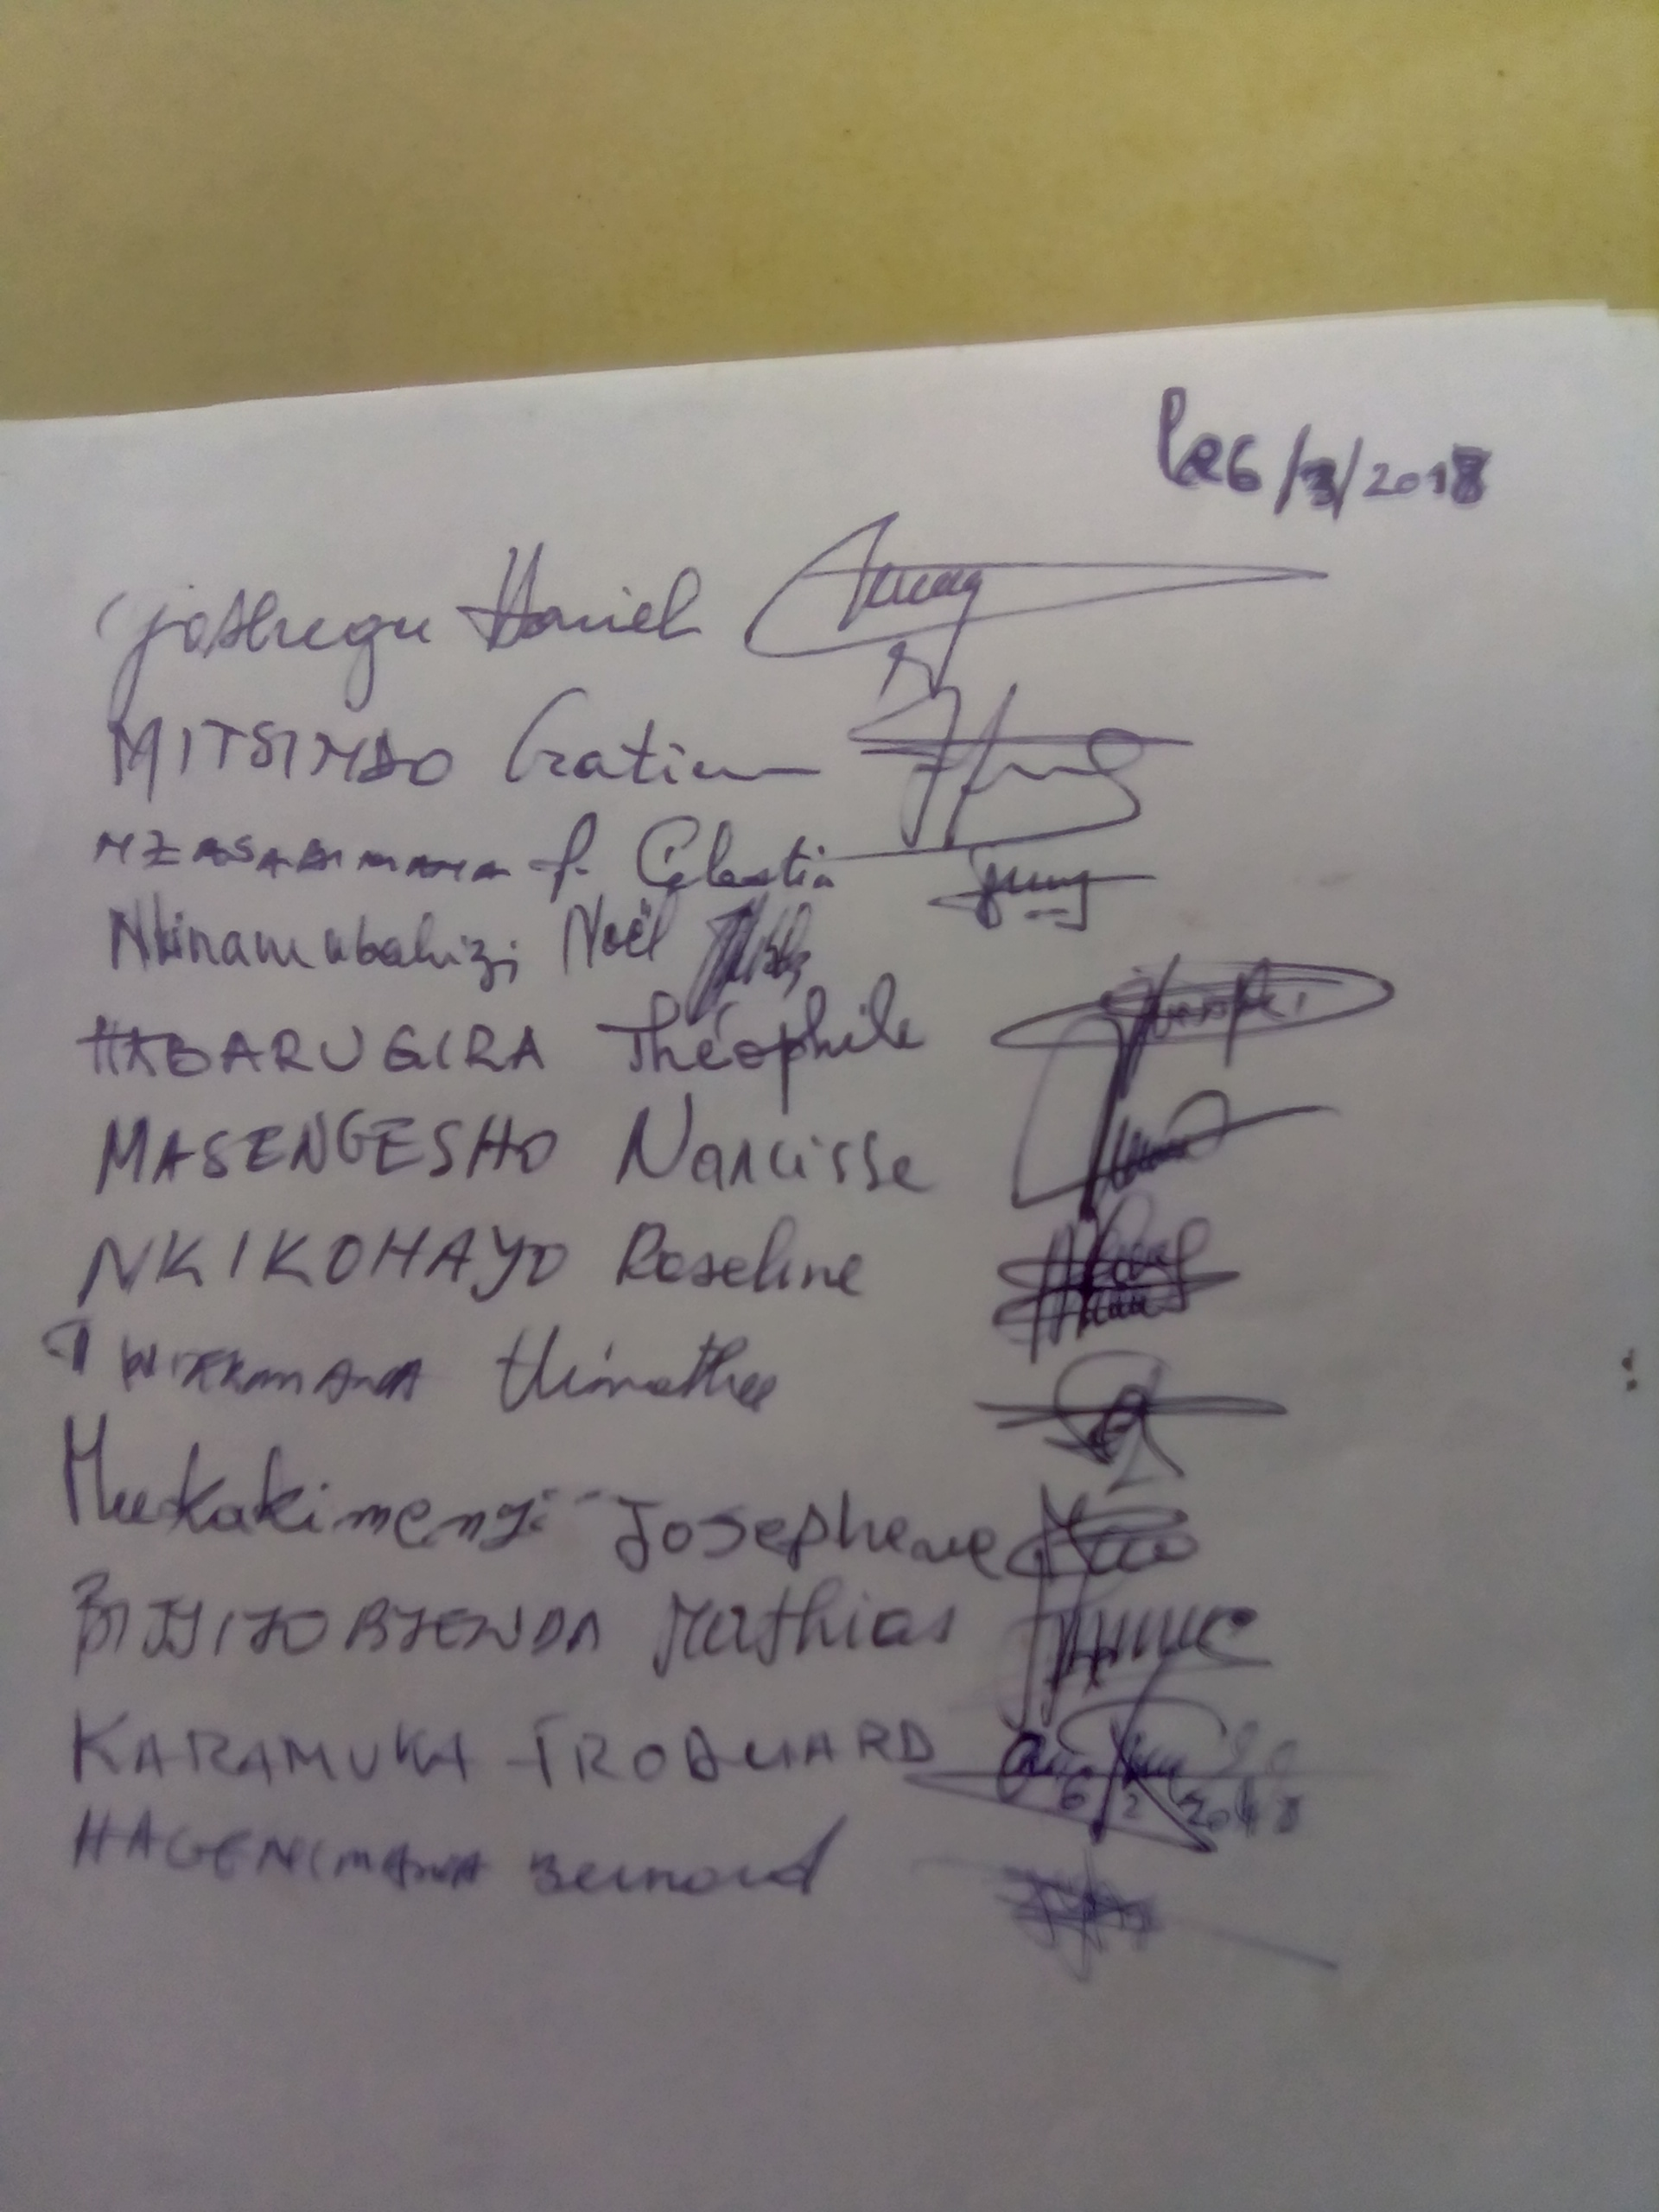 Le 6/3/2018
Daniel
MITSINDO Gratien
NZASABIMANA J. Célestin
Nkinamubahizi Noël
HABARUGIRA Théophile
MASENGESHO Narcisse
NKIKOHAYO Roseline
TWIZERIMANA thimothee
Mukakimenyi Josephene
Mathias
KARAMUKA FRODUARD
6/2 2018
HAGENIMANA Bernard